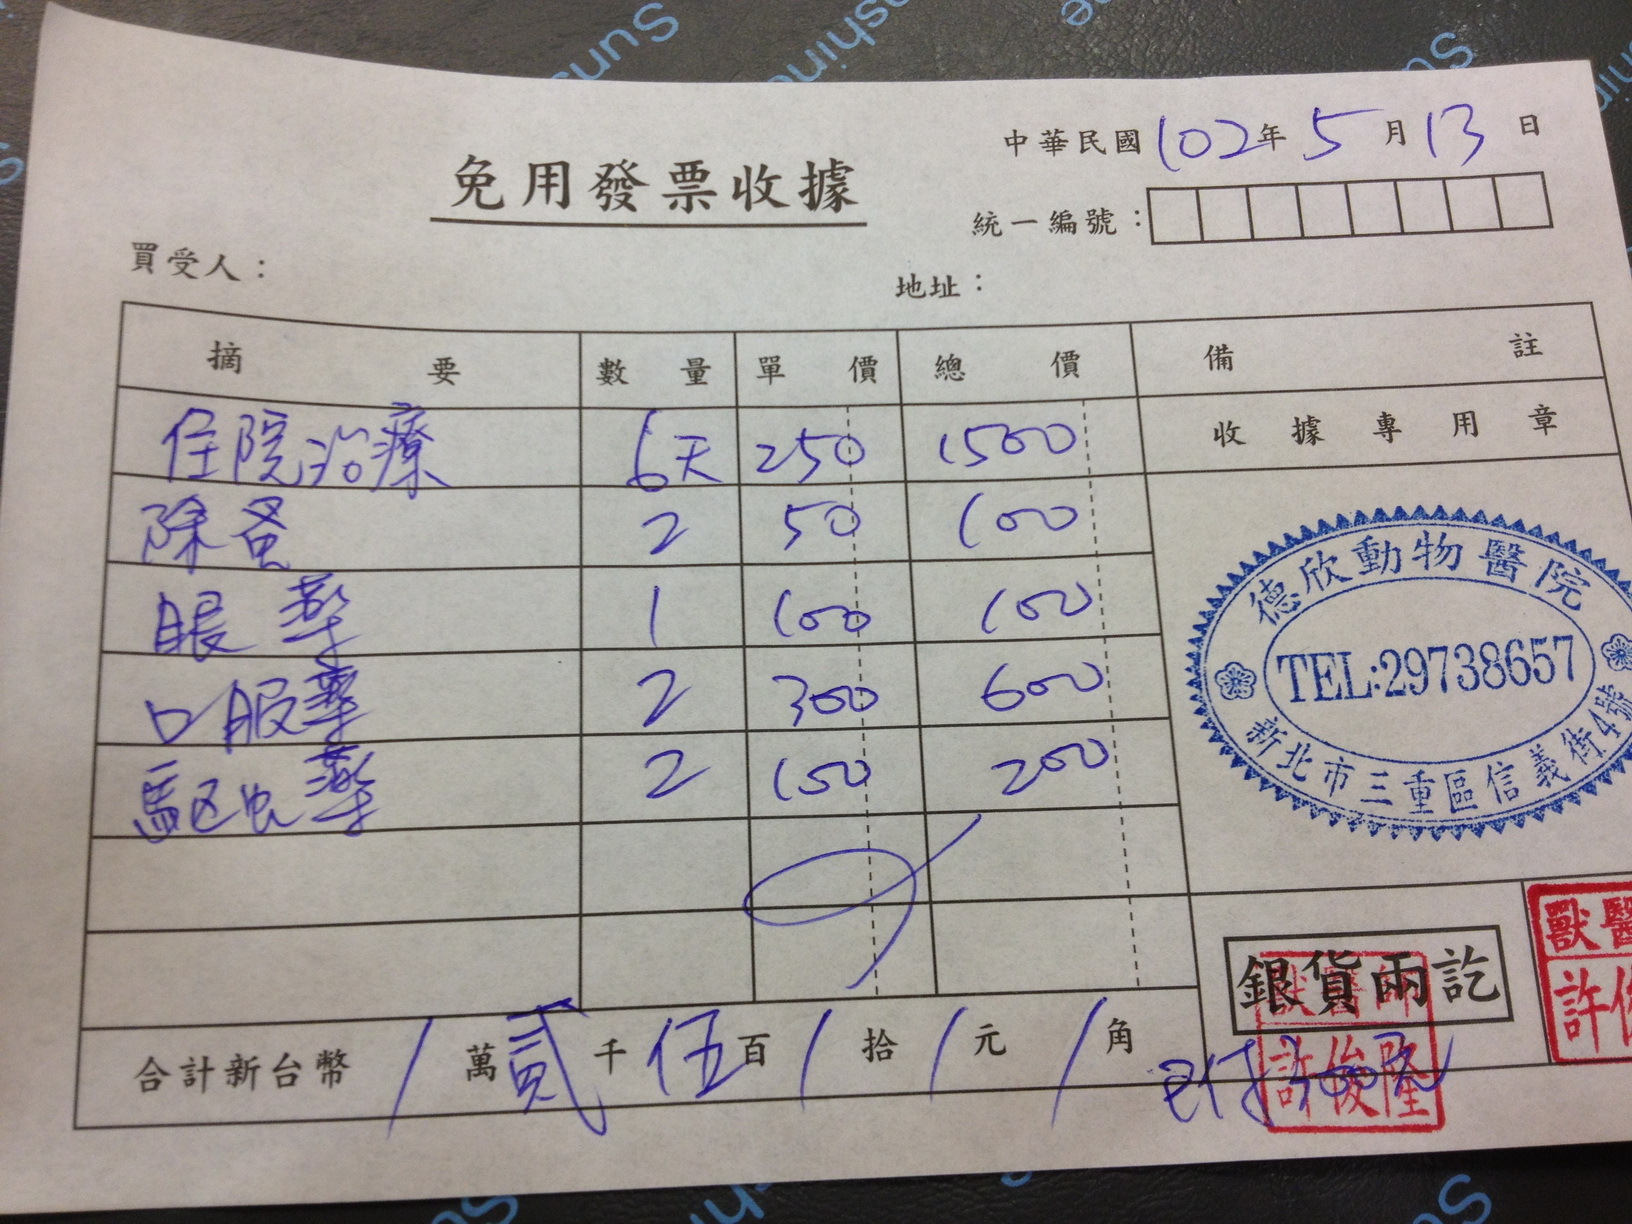 中華民國102年5月13日
免用發票收據
統一編號：
買受人：
地址：
摘要 數量 單價 總價 備註
收據專用章
住院治療 6天 250 1500
除蚤 2 50 100
眼藥 1 100 100
口服藥 2 300 600
驅虫藥 2 100 200
德欣動物醫院
TEL:29738657
新北市三重區信義街4號
銀貨兩訖
獸醫師
許俊隆
獸醫
許俊
合計新台幣 / 萬貳千伍百/拾/元/角
已付
Sunshine